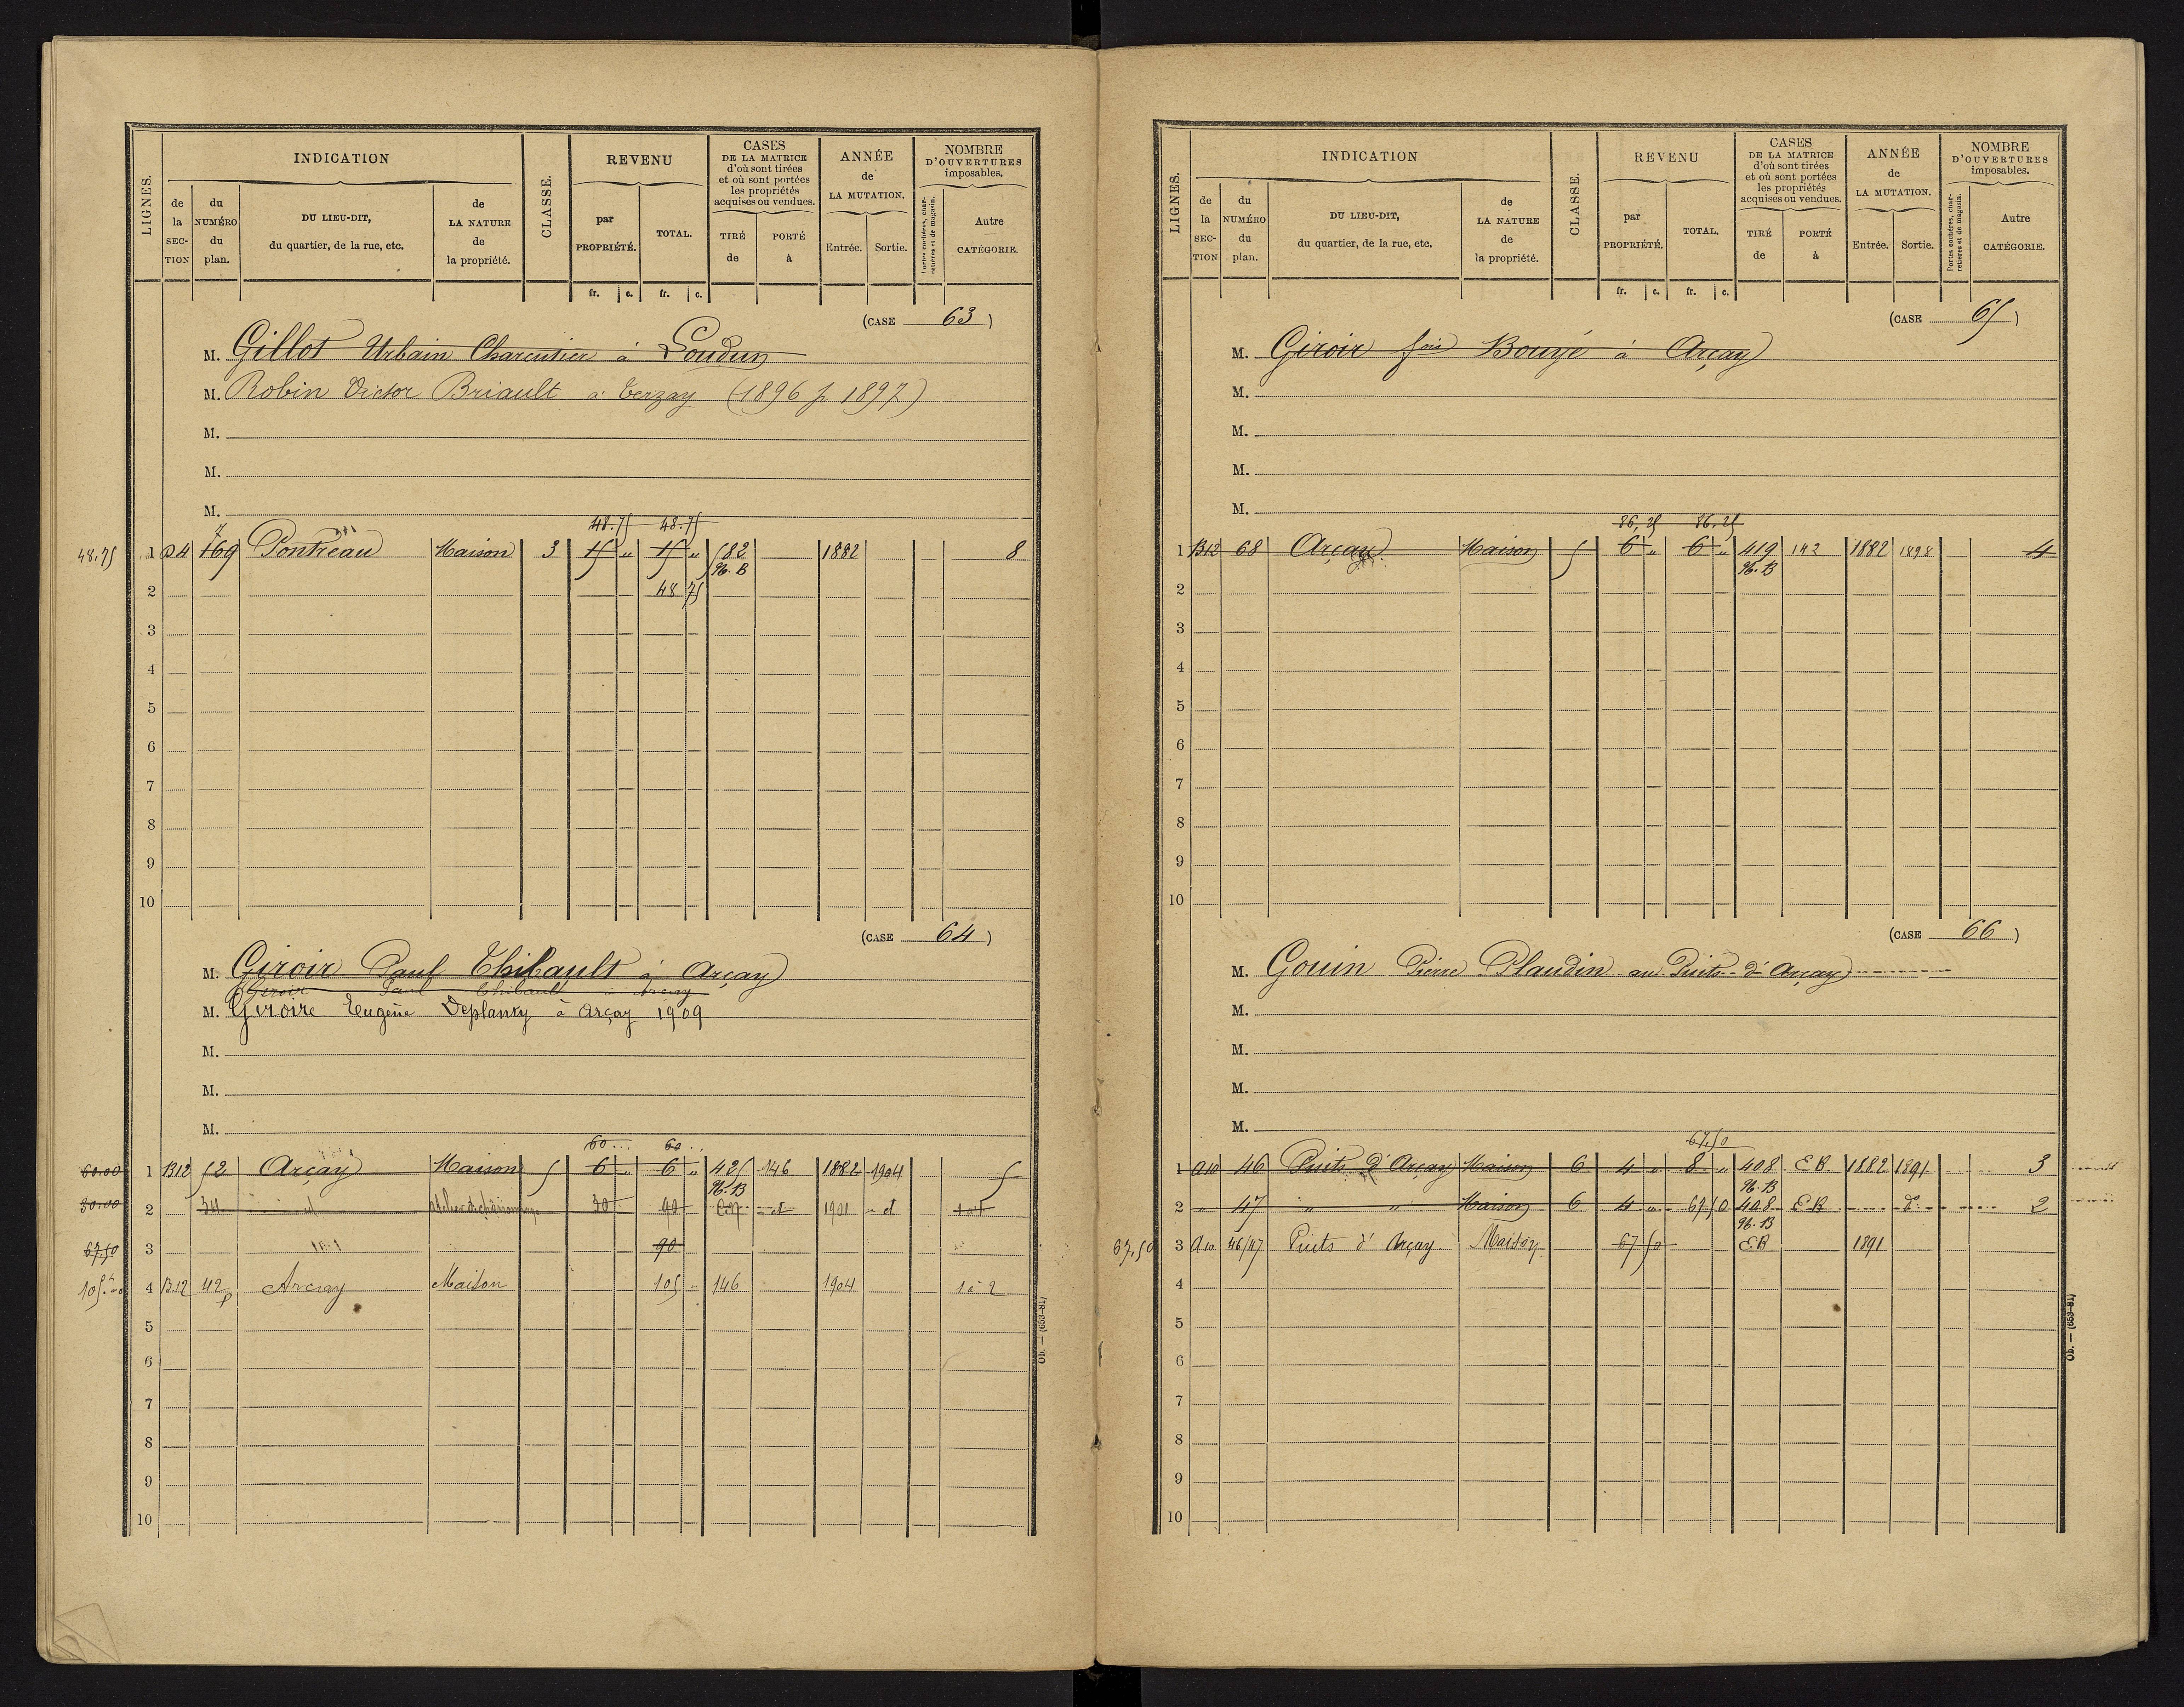 LIGNES.
INDICATION
de la SECTION
du NUMÉRO du plan.
DU LIEU-DIT, du quartier, de la rue, etc.
de LA NATURE de la propriété.
CLASSE.
REVENU
par PROPRIÉTÉ.
TOTAL.
fr. c. fr. c.
CASES DE LA MATRICE d'où sont tirées et où sont portées les propriétés acquises ou vendues.
TIRÉ de
PORTÉ à
ANNÉE de LA MUTATION.
Entrée. Sortie.
NOMBRE D'OUVERTURES imposables.
Portes cochères, charretières et de magasin.
Autre CATÉGORIE.
(CASE 63)
M. Gillot Urbain Charcutier à Loudun
M. Robin Victor Briault à Terzay (1896 p 1897)
M.
M.
M.
48.75 48.75
48.75 1 D4 169 Pontreau Maison 3 15 " 15 " 582 1882 8
96. B
2 48 75
3
4
5
6
7
8
9
10
(CASE 64)
M. Giroir Paul Thibault à Arçay
Giroir Paul Thibault à Arçay
M. Giroire Eugène Deplanty à Arçay 1909
M.
M.
M.
60 60
60.00 1 B12 52 Arçay Maison 5 6 " 6 " 425 146 1882 1904 5
96. B
30.00 2 34 30 90 1901 d
67.50 3 90
105 4 B.12 42p Arçay Maison 105 146 1904 1 à 2
5
6
7
8
9
10
Ob. — (653-81)
LIGNES.
INDICATION
de la SECTION
du NUMÉRO du plan.
DU LIEU-DIT, du quartier, de la rue, etc.
de LA NATURE de la propriété.
CLASSE.
REVENU
par PROPRIÉTÉ.
TOTAL.
fr. c. fr. c.
CASES DE LA MATRICE d'où sont tirées et où sont portées les propriétés acquises ou vendues.
TIRÉ de
PORTÉ à
ANNÉE de LA MUTATION.
Entrée. Sortie.
NOMBRE D'OUVERTURES imposables.
Portes cochères, charretières et de magasin.
Autre CATÉGORIE.
(CASE 65)
M. Giroir fois Bougé à Arçay
M.
M.
M.
M.
86,25 86,25
1 B12 68 Arçay Maison 5 6 " 6 " 419 142 1882 1898 4
96. B
2
3
4
5
6
7
8
9
10
(CASE 66)
M. Gouin Pierre Plaudin au Puits d'Arçay
M.
M.
M.
M.
67.50
1 A10 46 Puits d'Arçay Maison 6 4 " 8 " 408 EB 1882 1891 3
96. B
2 " 47 " " Maison 6 4 " 67 50 408 EB d° 2
96. B
67,50 3 A10 46/47 Puits d'Arçay Maison 67 50 EB 1891
4
5
6
7
8
9
10
Ob. — (653-81)